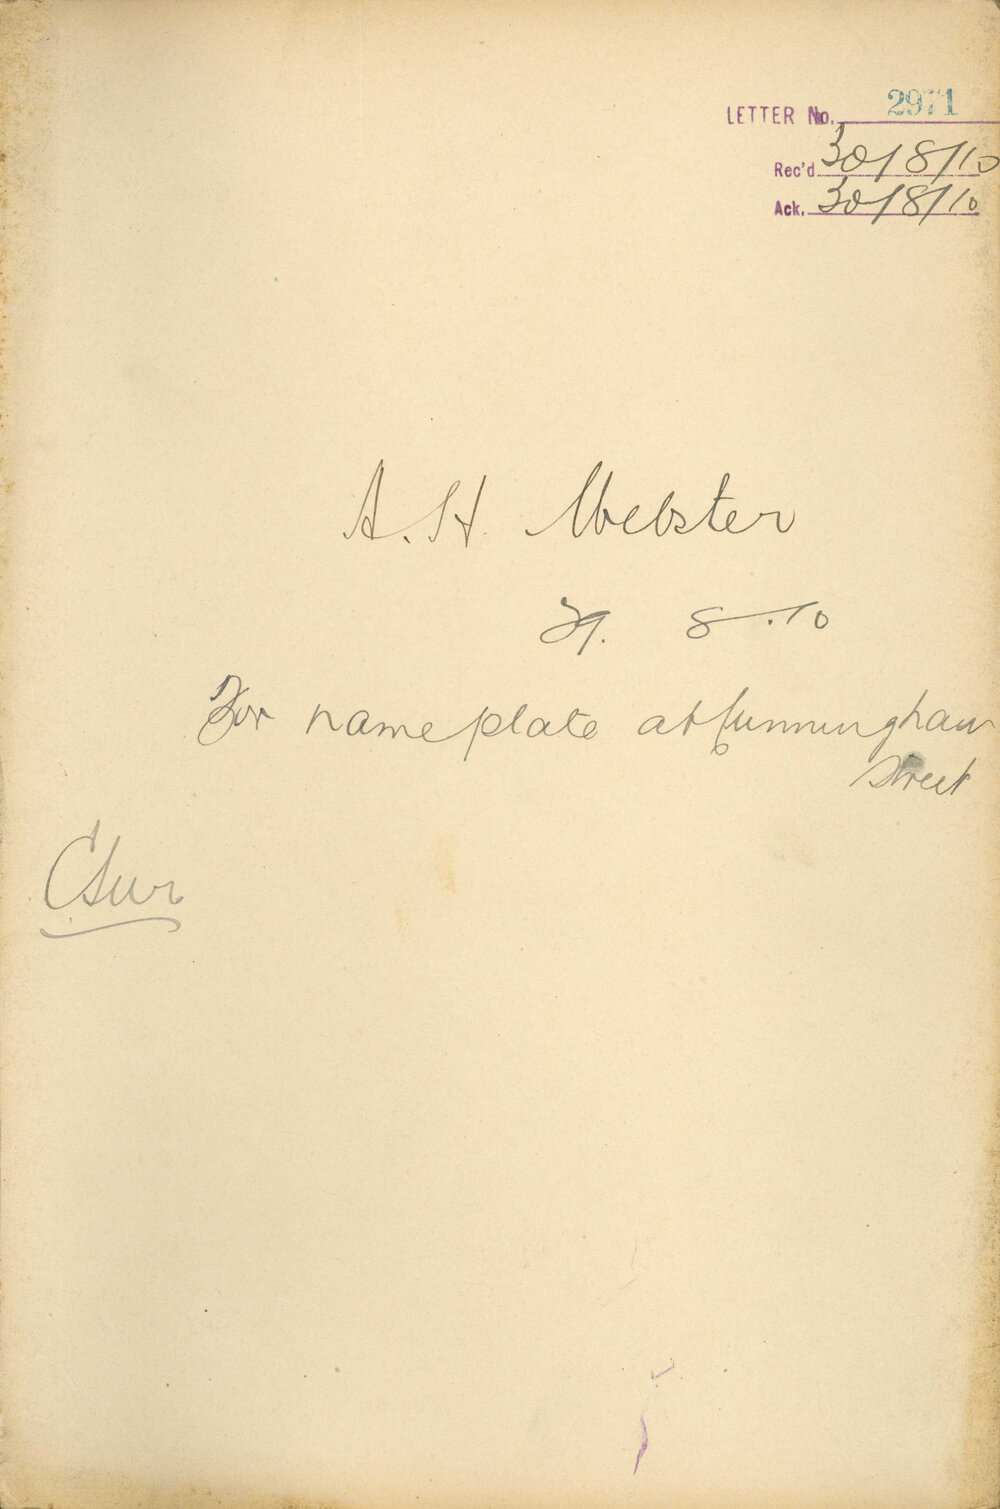 LETTER No. 2971
Rec'd 30/8/10
Ack. 30/8/10
A. H. Webster
29. 8.10
For name plate at Cunningham
Street